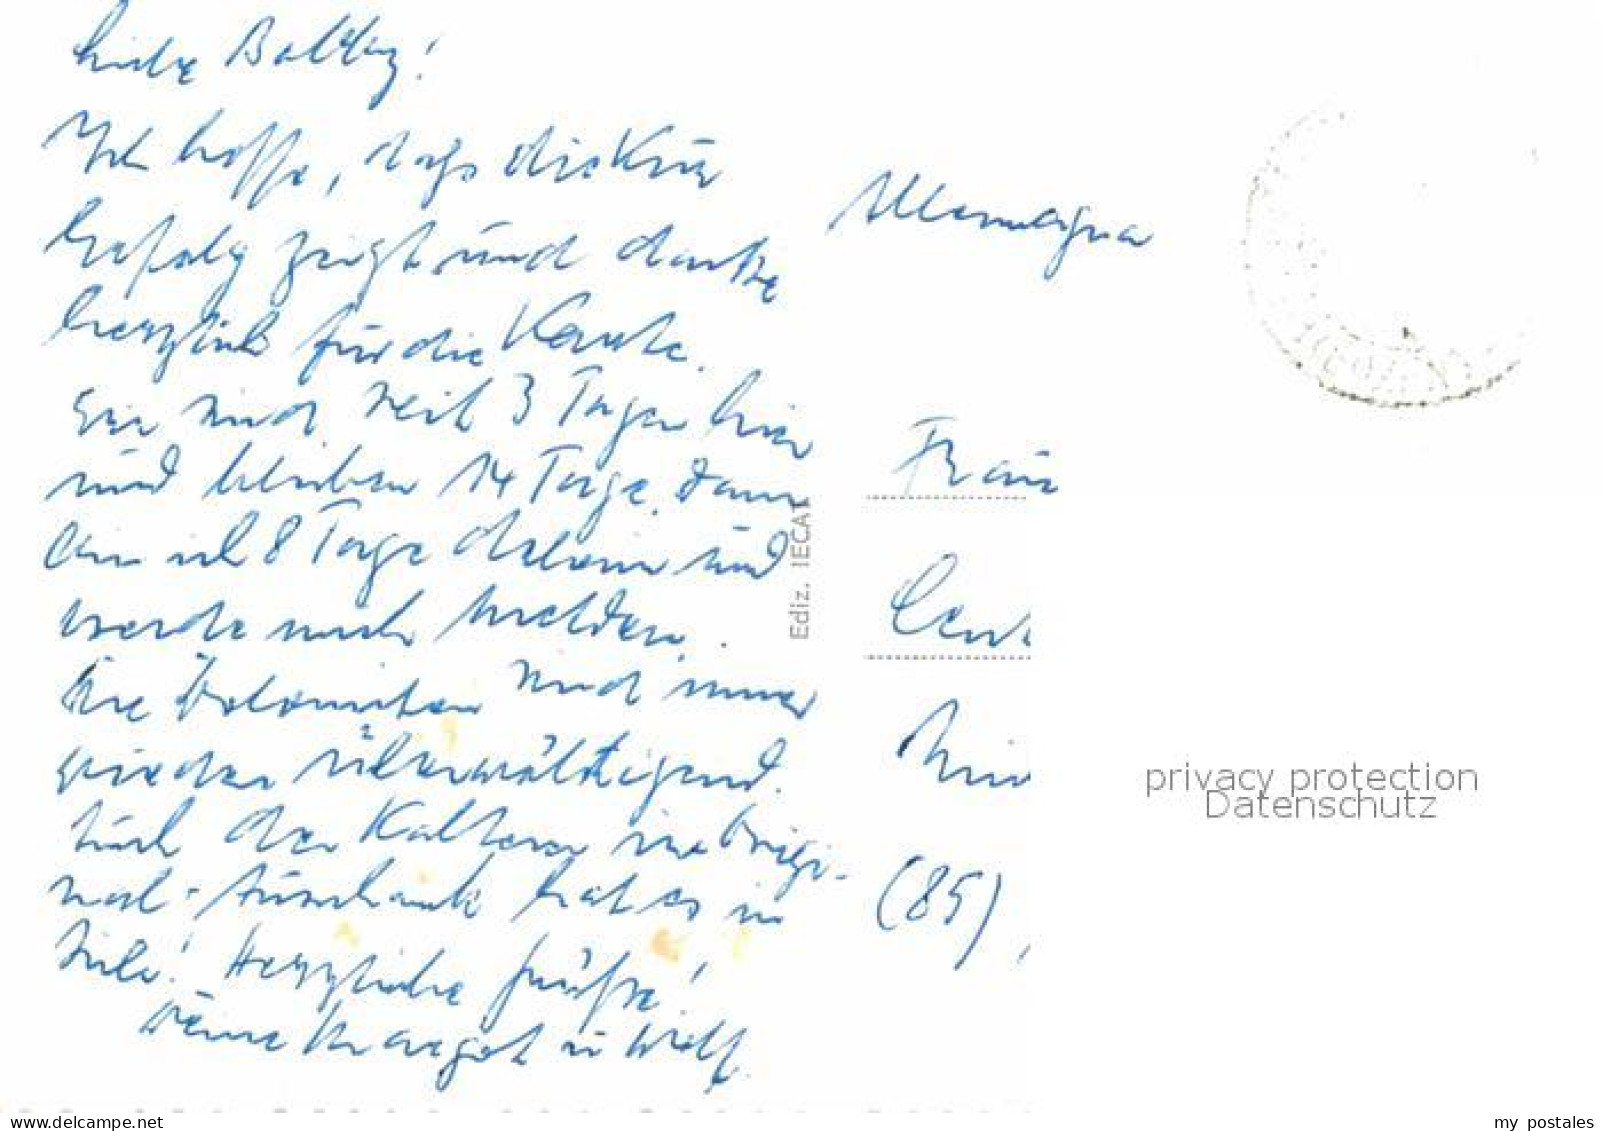 Liebe
Ich hoffe, dass die Kur
Erfolg zeigt und danke
herzlich für die Karte.
Wir sind seit 3 Tagen hier
und bleiben 14 Tage. Dann
bin ich 8 Tage daheim und
werde mich melden.
Die Dolomiten sind immer
wieder überwältigend.
Auch der Kalterer im Origi-
nal-Ausschank hat es in
sich! Herzliche Grüße!
Deine Margot u. Wolf.
Ediz. IECAT
Allemagna
Frau
(85)
privacy protection
Datenschutz
delcampe.net
my postales